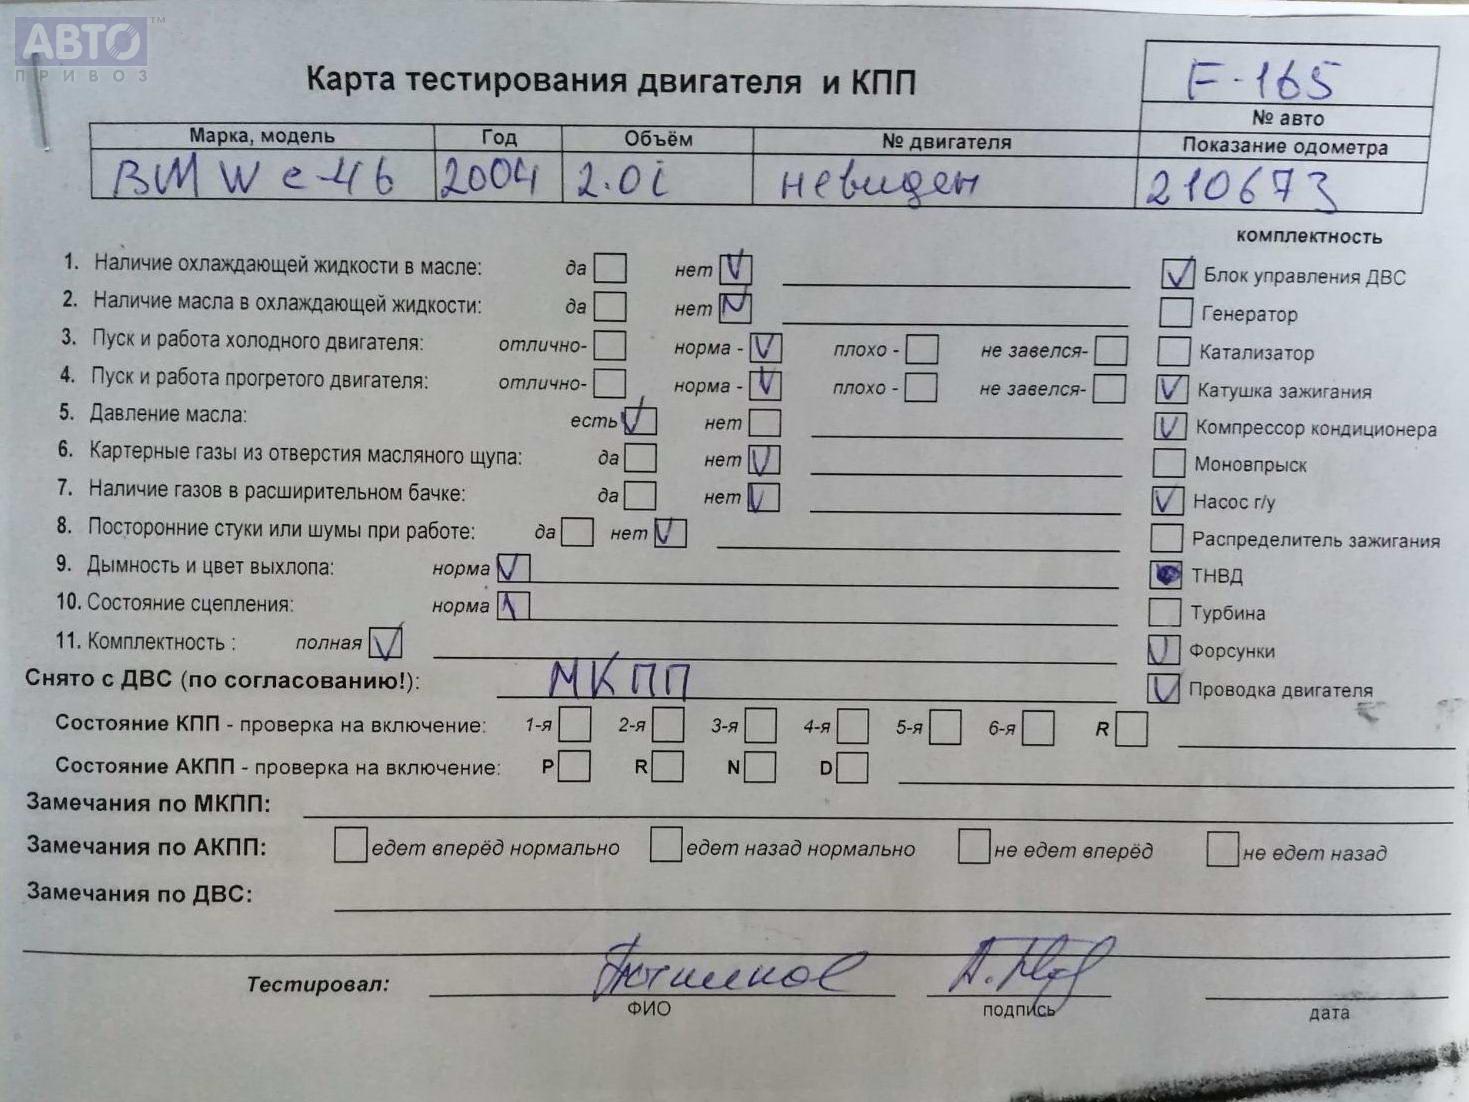 АВТО™
ПРИВОЗ
Карта тестирования двигателя и КПП
F-165
№ авто
Марка, модель Год Объём № двигателя Показание одометра
BMW e-46 2004 2.0i невиден 210673
комплектность
1. Наличие охлаждающей жидкости в масле: да нет V
V Блок управления ДВС
2. Наличие масла в охлаждающей жидкости: да нет V
Генератор
3. Пуск и работа холодного двигателя: отлично- норма - V плохо - не завелся-
Катализатор
4. Пуск и работа прогретого двигателя: отлично- норма - V плохо - не завелся-
V Катушка зажигания
5. Давление масла: есть V нет
V Компрессор кондиционера
6. Картерные газы из отверстия масляного щупа: да нет V
Моновпрыск
7. Наличие газов в расширительном бачке: да нет V
V Насос г/у
8. Посторонние стуки или шумы при работе: да нет V
Распределитель зажигания
9. Дымность и цвет выхлопа: норма V
ТНВД
10. Состояние сцепления: норма V
Турбина
11. Комплектность : полная V
V Форсунки
Снято с ДВС (по согласованию!): МКПП
V Проводка двигателя
Состояние КПП - проверка на включение: 1-я 2-я 3-я 4-я 5-я 6-я R
Состояние АКПП - проверка на включение: P R N D
Замечания по МКПП:
Замечания по АКПП: едет вперёд нормально едет назад нормально не едет вперёд не едет назад
Замечания по ДВС:
Тестировал:
ФИО подпись дата